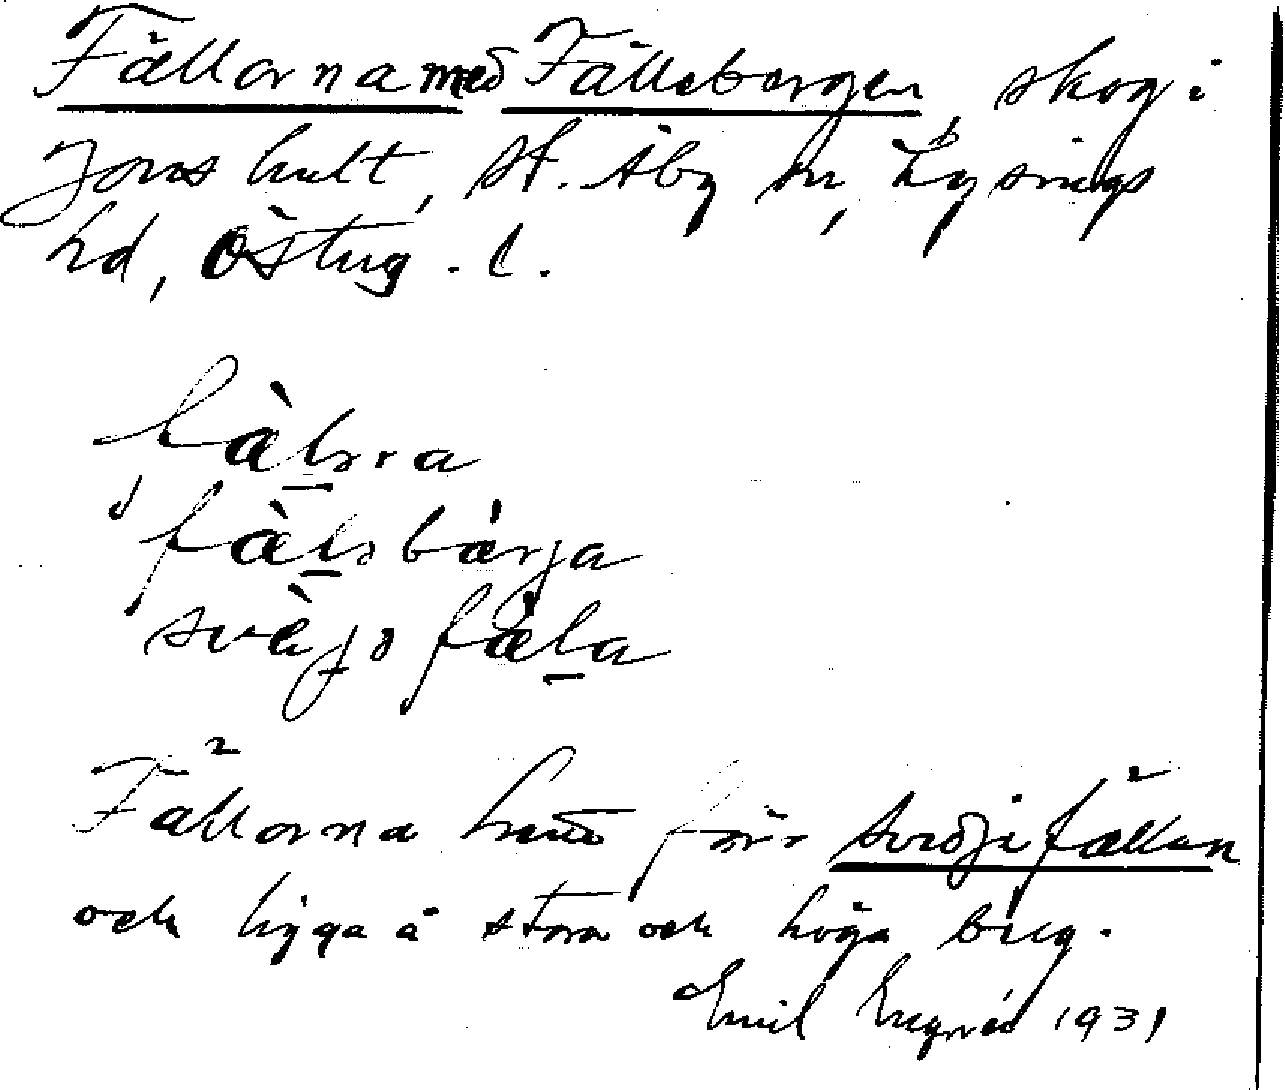 Fällorna med Fällebergen, skog i
Jonshult, St. Åby sn, Lysings
hd, Östug. l.
fàlsbärja
svèjofàla
Fällorna för svedjefällan
och ligga å stora och höga berg.
Emil 1931